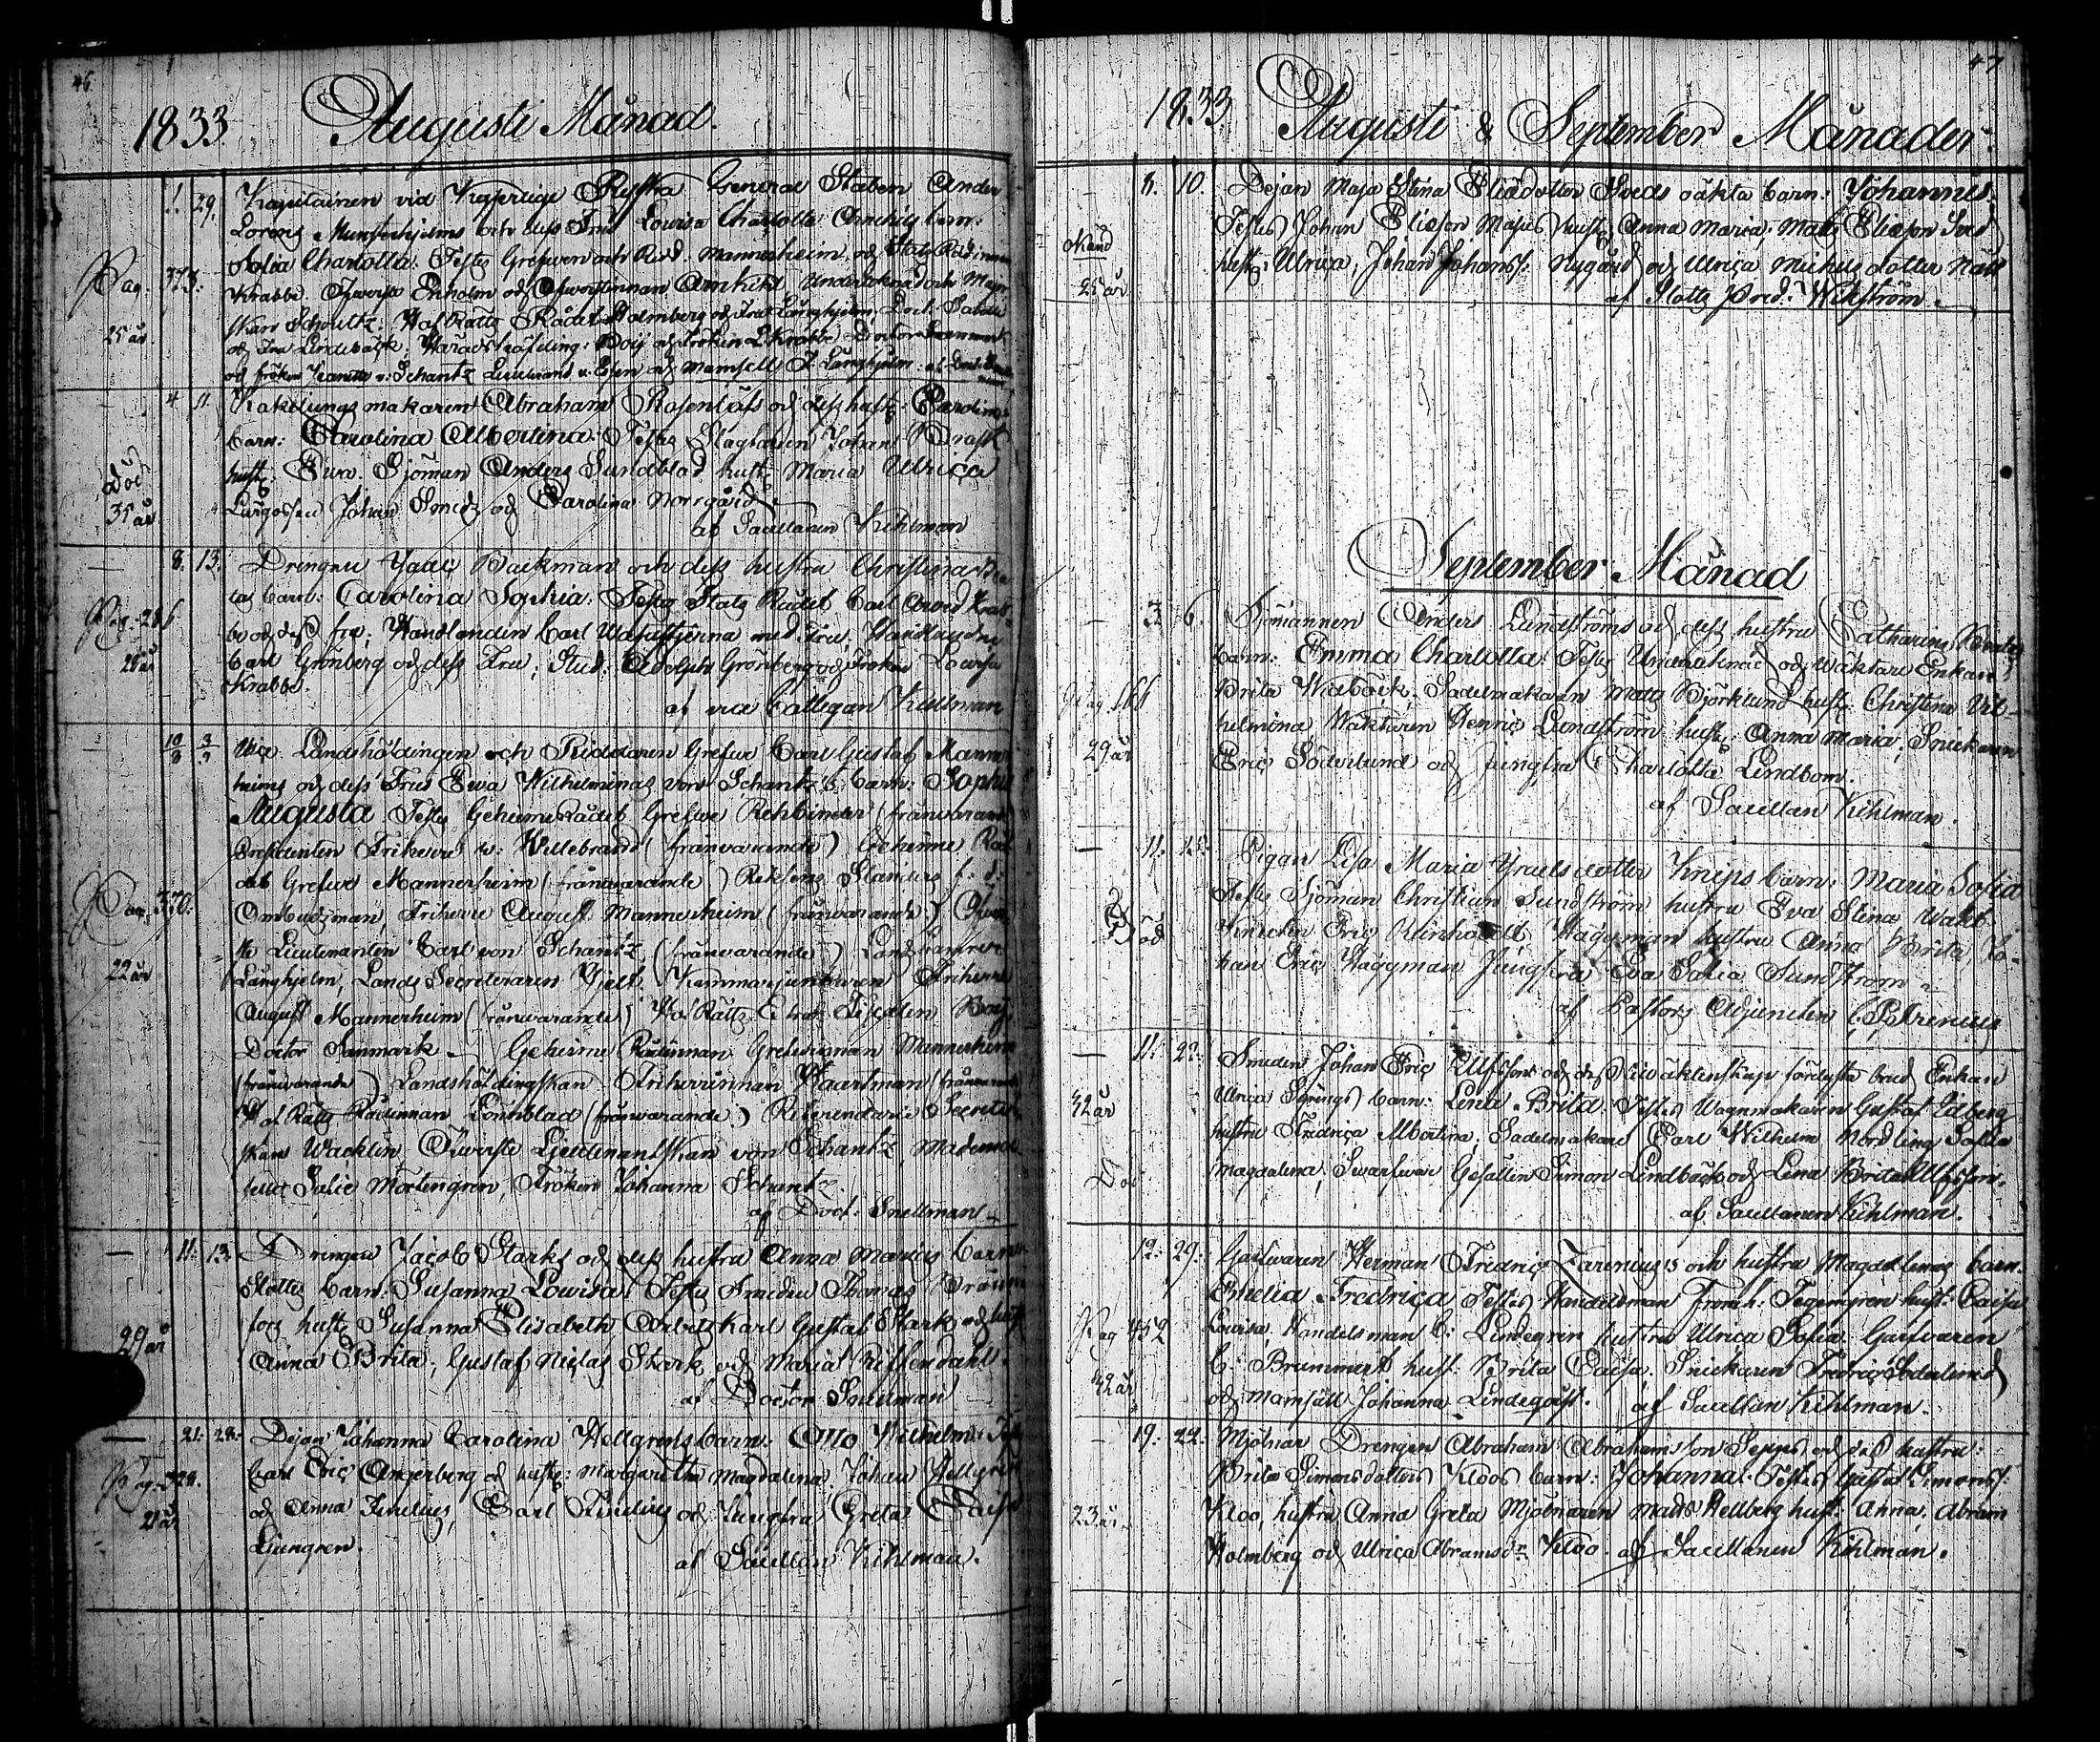 46
1833. Augusti Månad.
1. 29. Kapitainen vid Kejserlige Ryska General Staben Ander
Lorens Munsterhjelms och dess Fru Lovisa Charlotta barn:
Sofia Charlotta. Testes Grefven och Ridd. Mannerheim, och Stats Rådinnan
Pag. 373:
Krabbe. Öfverste Enholm och Öfverstinnan
skan Schoultz. Hof Rätts Rådet Holmberg och Fru Långhjelm, Doct.
25 år
och Fru Lindebäck, Häradshöfding: Boije och Fröken L. Krabbe,
och fröken Jeanette v. Schantz Lieutenant v. Essen och Mamsell Långhjelm. af Doct.
4 11. Abraham Rosenlöfs och dess hust: Carolinas
barn: Carolina Albertina. Testes Johan Brask
hust: Eva. Sjöman Anders Sundblad hust: Maria Ulrica
död
35 år
Johan Smeds och Carolina Norrgård.
af Sacellanen Kihlman
8. 13. Drengen Backman och dess hustru Christina
tas barn: Carolina Sophia. Testes Stats Rådet Carl Arvid Krab-
Pag. 286
be och dess fru; Handlanden Carl Wasastjerna med Fru, Handlanden
28 år
Carl Grönberg och dess Fru; Stud: Adolph Grönberg och Fröken Lovisa
Krabbe.
af vice Collegan Kihlman
10/8 3/9 Vice Landshöfdingen och Riddaren Grefve Carl Gustaf Manner
heims och dess Frus Eva Wilhelminas von Schantz's barn: Sophia
Augusta. Testes Geheime Rådet Grefve Rehbinder (frånvarande
Presidenten Friherre v: Willebrand (frånvarande) Geheime Råd
det Grefve Mannerheim (frånvarande) Riksens Ständers f: d:
Pag. 370:
Ombudsman, Friherre August Mannerheim (frånvarande) Öfver
ste Lieutenanten Carl von Schantz (frånvarande)
22 år
Långhjelm, Lands Secreteraren Hjelt. Kammarjunkaren Friherre
August Mannerheim (frånvarande) Hof Rätts Boij
Doctor Sanmark. Geheime Rådinnan Grefvinnan Mannerheim
(frånvarande) Landshöfdingskan Friherrinnan Haartman (frånvarand
Hof Rätts Rådinnan Lönnblad (frånvarande) Referendarie Secrete
skan Wacklin Öfverste Lieutenantskan von Schantz, Mademoi
selle Salie Mortengren, Fröken Johanna Schantz.
af Doct: Snellman
11. 13. Drengen Jacob Starks och dess hustru Anna Marias
barn: Susanna Lovisa. Testes Smeden Thomas
fors hust: Susanna Elisabeth Arbetskarl Gustaf Stark och hust
29 år
Anna Brita; Gustaf Niclas Stark och Maria Riffendahl.
af Doctor Snellman
21. 28. Pigan Johanna Carolina Hellgrens barn: Otto Wilhelm. Test
Pag. 328.
Carl Eric Angerberg och hust: Margaretha Magdalena. Johan Hellgren
21 år
och Anna Junelius, Carl Junelius och Jungfru Greta Caisa
Ljungren.
af Sacellan Kihlman.
47
1833 Augusti & September Månader.
8. 10. Pejan Maja Stina Eliædotter Sveds oäkta barn: Johannes.
Testes Johan Eliæson hust: Anna Maria; Matts Eliæson Sved
okänd
25 år
hust: Ulrica, Johan Johanss: Nygård och Ulrica Michels dotter Näss
af Slotts Pred. Wikström.
September Månad
3. 6. Sjömannen Anders Lundströms och dess hustru Catharina
barn: Emma Charlotta. Testes och Wäktare Enkan
Pag. 166
Brita Widbäck. Sadelmakaren Matts Björklund hust: Christina Wil-
helmina, Waktaren Henric Lundström hust: Anna Maria, Snickaren
29 år
Eric Söderlund och Jungfru Charlotta Lindbom.
af Sacellan Kihlman.
11. 25. Pigan Lisa Maria Israelsdotter Knips barn: Maria Sofia
Testes Sjöman Christian Sundström hustru Eva Stina
död
Eric Reinholdt Häggman hustru Anna Brita, Jo-
han Eric Häggman Jungfru Eva Sofia Sundström
af Pastors Adjuncten
11. 22. Smeden Johan Eric Ulfssons och dess till äktenskap förlysta brud Enkan
42 år
Ulrica Spings barn: Lena Brita. Testes Wagnmakaren Gustaf Edberg
hustru Fredrica Albertina; Sadelmakare Carl Wilhelm Nordling Sofia
Död
Magdalena, Svarfvare Gesällen Simon Lindbäck och Lena Brita Ulfsson.
af Sacellanen Kihlman.
12. 29. Garfvaren Herman Fredric Zarenius's och hustru Magdalenas barn.
Emelia Fredrica Testes Handelsman Tegengren hust: Caisa
Pag 452
Lovisa. Handelsman C: Lindegren hustru Ulrica Sofia. Garfvaren
42 år
C: Brummert hust: Brita Caisa. Snickaren Fredric Söderlund
och Mamsäll Johanna Lindeqvist. af Sacellan Kihlman.
19. 22. Mjölnar Drengen Abraham Abrahamsson Seppes och dess hustru:
Brita Simonsdotters Kloos barn: Johanna. Testes Gustaf Simonss:
23 år
Kloo, hustru Anna Greta Mjölnaren Matts Hellberg hust: Anna, Abram
Holmberg och Ulrica Abramsdr Kloo. af Sacellanen Kihlman.